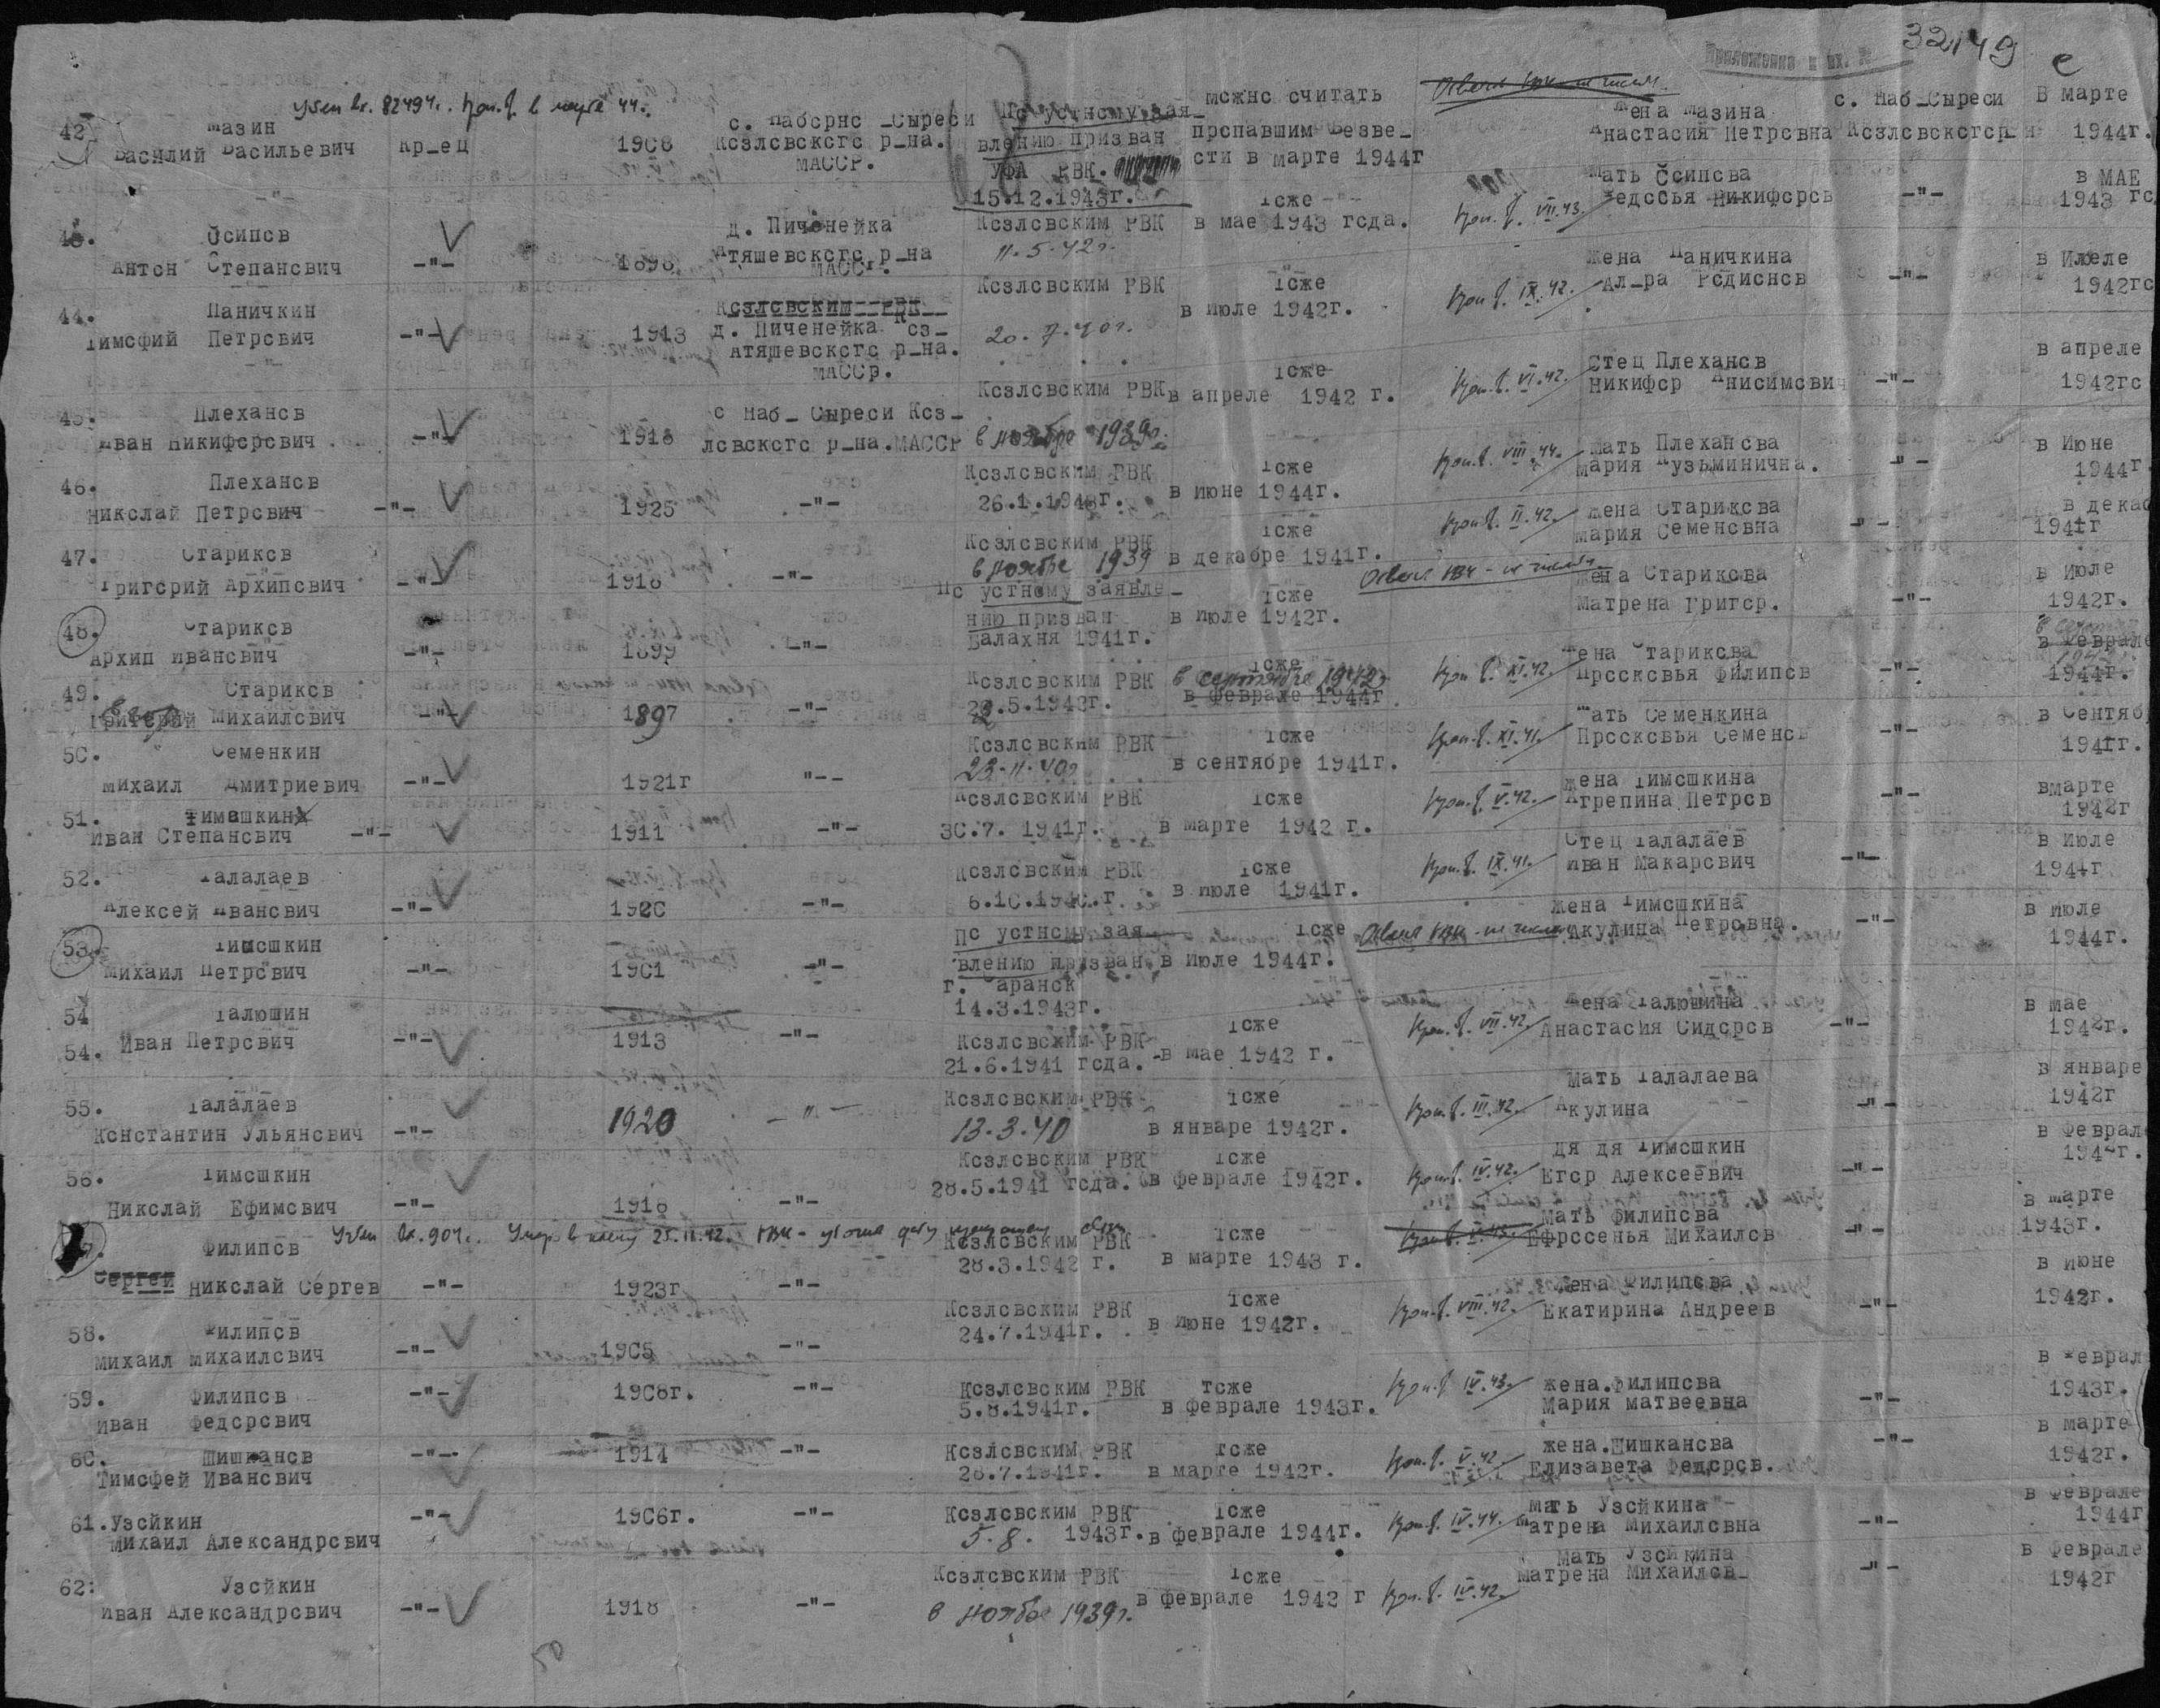 32149 с
Приложение к вх. №
42 Мазин
Василий Васильевич кр-ец 1908 с. Наборно-Сыреси Козловского р-на. МАССР. По устному заявлению призван УФА РВК. 15.12.1943г. можно считать пропавшим безвести в марте 1944г Жена Мазина Анастасия Петровна с. Наб-Сыреси Козловского р-н В марте 1944г.
43. Осипов
Антон Степанович -"- 1898 д. Пиченейка Атяшевского р-на МАССР. Козловским РВК 11.5.42г. Тоже в мае 1943 года. VII.43. Мать Осипова Федосья Никифоров -"- в МАЕ 1943 го
44. Паничкин
Тимофий Петрович -"- 1913 Козловским РВК д. Пиченейка Коз- Атяшевского р-на. МАССр. Козловским РВК 20.7.40г. Тоже в июле 1942г. IX.42. Жена Паничкина Ал-ра Родионов -"- в Июле 1942го
45. Плеханов
Иван Никифорович -"- 1918 с Наб-Сыреси Козловского р-на.МАССР Козловским РВК в ноябре 1939г. Тоже в апреле 1942 г. VI.42. Отец Плеханов Никифор Анисимович -"- в апреле 1942го
46. Плеханов
Николай Петрович -"- 1925 -"- Козловским РВК 26.1.1943г. Тоже в июне 1944г. VIII.44. Мать Плеханова Мария Кузьминична. -"- в Июне 1944г.
47. Стариков
Григорий Архипович -"- 1918 -"- Козловским РВК в ноябре 1939 Тоже в декабре 1941г. II.42. Жена Старикова Мария Семеновна -"- в декаб 1941г
48. Стариков
Архип Иванович -"- 1899 -"- По устному заявлению призван Балахня 1941г. Тоже в июле 1942г. Жена Старикова Матрена Григор. -"- в Июле 1942г.
49. Стариков
Григорий Михайлович -"- 1897 -"- Козловским РВК .5.1943г. Тоже в сентябре 1942г в феврале 1944г XI.42. Жена Старикова Просковья Филипов -"- в феврале 1944г.
50. Семенкин
Михаил Дмитриевич -"- 1921г "-- Козловским РВК 23.11.40г Тоже в сентябре 1941г. XI.41. Мать Семенкина Просковья Семенов -"- в Сентяб 1941г.
51. Тимошкин
Иван Степанович -"- 1911 -"- Козловским РВК 30.7. 1941г. Тоже в марте 1942 г. V.42. Жена Тимошкина Агрепина Петров -"- вмарте 1942г
52. Талалаев
Алексей Иванович -"- 1920 -"- Козловским РВК 6.10.1940.г. Тоже в июле 1941г. IX.41. Отец Талалаев Иван Макарович -"- в Июле 1941г
53. Тимошкин
Михаил Петрович -"- 1901 -"- По устному заявлению призван г. Саранск 14.3.1943г. Тоже в июле 1944г. Жена Тимошкина Акулина Петровна. -"- в июле 1944г.
54 Талюшин
54. Иван Петрович -"- 1913 -"- Козловским РВК 21.6.1941 года. Тоже в мае 1942 г. VII.42. Жена Талюшина Анастасия Сидоров -"- в мае 1942г.
55. Талалаев
Константин Ульянович -"- 1920 -"- Козловским РВК 13.3.40 Тоже в январе 1942г. III.42. Мать Талалаева Акулина -"- в январе 1942г
56. Тимошкин
Николай Ефимович -"- 1918 -"- Козловским РВК 28.5.1941 года. Тоже в феврале 1942г. IV.42. дя дя Тимошкин Егор Алексеевич -"- в феврал 1942г.
Филипов
Сергей Николай Сергев -"- 1923г -"- Козловским РВК 28.3.1942 г. Тоже в марте 1943 г. Мать Филипова Ефросенья Михайлов -"- в марте 1943г.
58. Филипов
Михаил Михайлович -"- 1905 -"- Козловским РВК 24.7.1941г. Тоже в июне 1942г. VIII.42. Жена Филипова Екатирина Андреев -"- в июне 1942г.
59. Филипов
Иван Федорович -"- 1908г. -"- Козловским РВК 5.8.1941г. Тоже в феврале 1943г. IV.43. жена.Филипова Мария матвеевна -"- в феврал 1943г.
60. Шишканов
Тимофей Иванович -"- 1914 -"- Козловским РВК 28.7.1941г. Тоже в марте 1942г. V.42. жена.Шишканова Елизавета Федоров. -"- в марте 1942г.
61.Узойкин
Михаил Александрович -"- 1906г. -"- Козловским РВК 5.8. 1943г. Тоже в феврале 1944г. IV.44. мать Узойкина Матрена Михайловна -"- в феврале 1944г
62: Узойкин
Иван Александрович -"- 1918 -"- Козловским РВК в ноябре 1939г. Тоже в феврале 1942 г IV.42. Мать Узойкина Матрена Михайлов- -"- в феврале 1942г
50